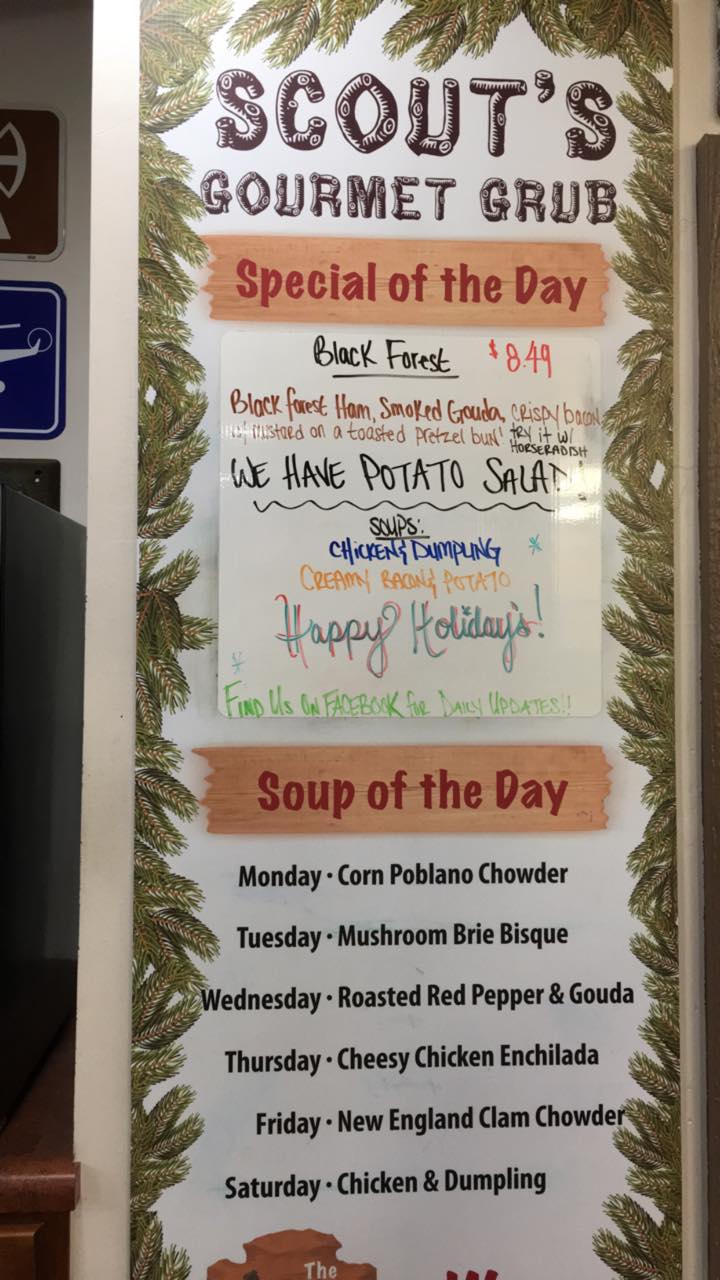 SCOUT'S
GOURMET GRUB
Special of the Day
Black Forest $8.49
Black forest Ham, Smoked Gouda, crispy bacon
w/ mustard on a toasted pretzel bun! TRY IT W/
HORSERADISH
WE HAVE POTATO SALAD!
SOUPS:
CHICKEN & DUMPLING
CREAMY BACON & POTATO
Happy Holiday's!
FIND US ON FACEBOOK for DAILY UPDATES!!
Soup of the Day
Monday · Corn Poblano Chowder
Tuesday · Mushroom Brie Bisque
Wednesday · Roasted Red Pepper & Gouda
Thursday · Cheesy Chicken Enchilada
Friday · New England Clam Chowder
Saturday · Chicken & Dumpling
The